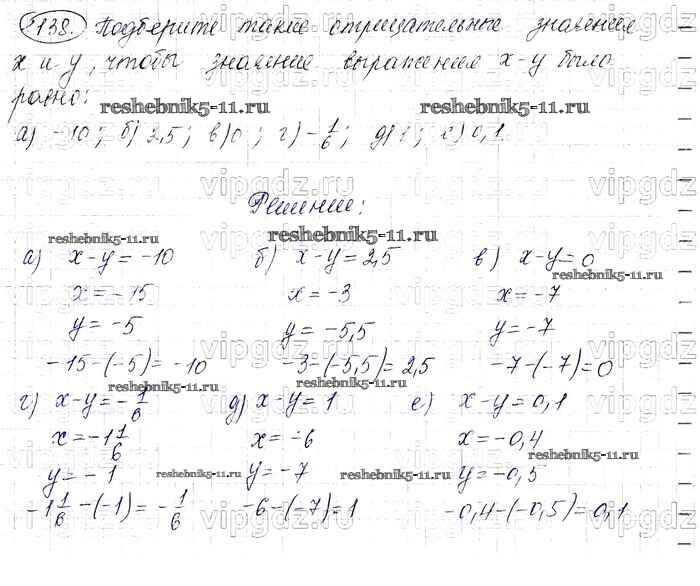 1138. Подберите такие отрицательные значения
x и y, чтобы значение выражения x-y было
равно:
reshebnik5-11.ru reshebnik5-11.ru
а) -10; б) 2,5; в) 0; г) -1/6; д) 1; е) 0,1
vipgdz vipgdz vipgdz
Решение:
reshebnik5-11.ru reshebnik5-11.ru
а) x-y = -10 б) x-y = 2,5 в) x-y = 0
reshebnik5-11.ru
x = -15 x = -3 x = -7
y = -5 y = -5,5 y = -7
-15-(-5) = -10 -3-(-5,5) = 2,5 -7-(-7) = 0
reshebnik5-11.ru reshebnik5-11.ru
г) x-y = -1/6 д) x-y = 1 е) x-y = 0,1
x = -1 1/6 x = -6 x = -0,4
reshebnik5-11.ru reshebnik5-11.ru reshebnik5-11.ru
y = -1 y = -7 y = -0,5
-1 1/6 -(-1) = -1/6 -6-(-7) = 1 -0,4-(-0,5) = 0,1
vipgdz vipgdz vipgdz